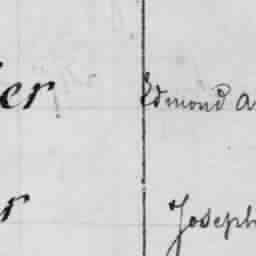 er Edmond a
r Joseph